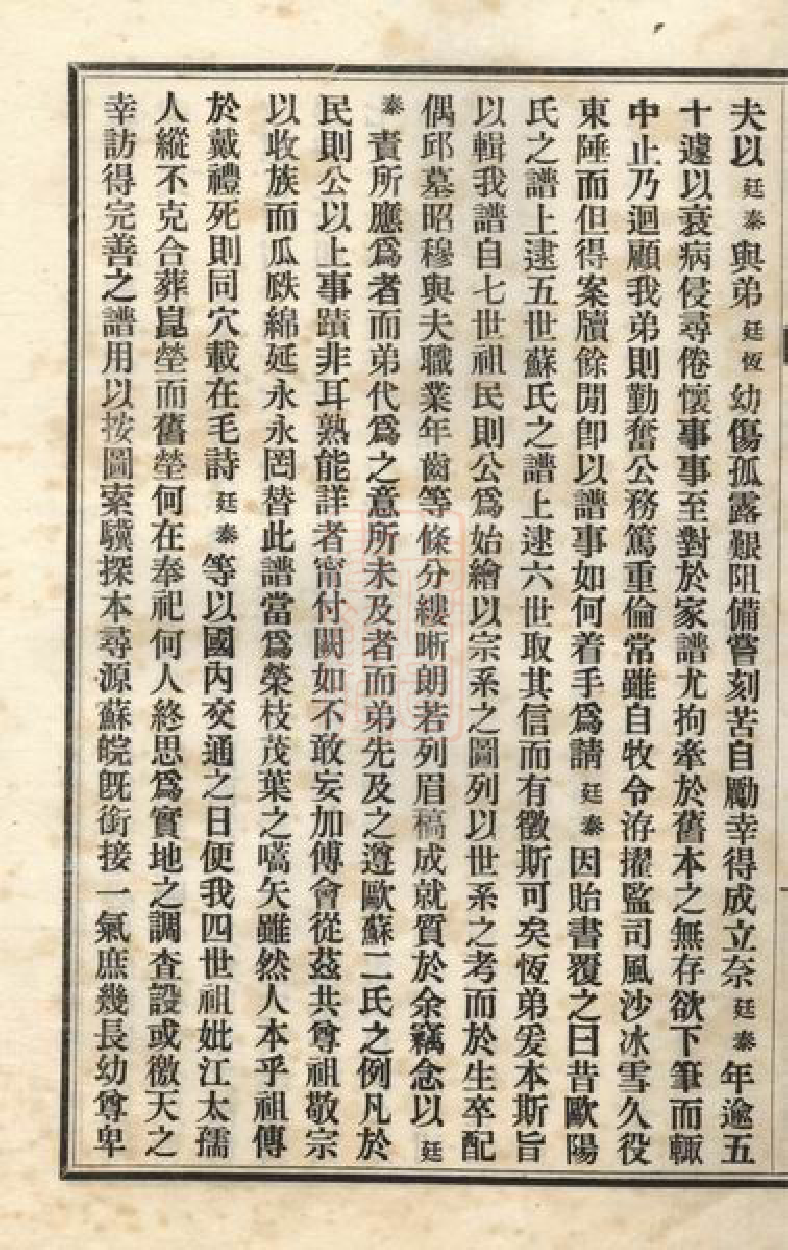 夫以廷泰與弟廷恆幼傷孤露艱阻備嘗刻苦自勵幸得成立奈廷泰年逾五
十遽以衰病侵尋倦懷事事至對於家譜尤拘牽於舊本之無存欲下筆而輒
中止乃迴顧我弟則勤奮公務篤重倫常雖自牧令洊擢監司風沙冰雪久役
東陲而但得案牘餘閒卽以譜事如何着手爲請廷泰因貽書覆之曰昔歐陽
氏之譜上逮五世蘇氏之譜上逮六世取其信而有徵斯可矣恆弟爰本斯旨
以輯我譜自七世祖民則公爲始繪以宗系之圖列以世系之考而於生卒配
偶邱墓昭穆與夫職業年齒等條分縷晰朗若列眉稿成就質於余竊念以廷
泰責所應爲者而弟代爲之意所未及者而弟先及之遵歐蘇二氏之例凡於
民則公以上事蹟非耳熟能詳者甯付闕如不敢妄加傅會從茲共尊祖敬宗
以收族而瓜瓞綿延永永罔替此譜當爲榮枝茂葉之嚆矢雖然人本乎祖傳
於戴禮死則同穴載在毛詩廷泰等以國內交通之日便我四世祖妣江太孺
人縱不克合葬崑塋而舊塋何在奉祀何人終思爲實地之調查設或徼天之
幸訪得完善之譜用以按圖索驥探本尋源蘇皖旣銜接一氣庶幾長幼尊卑